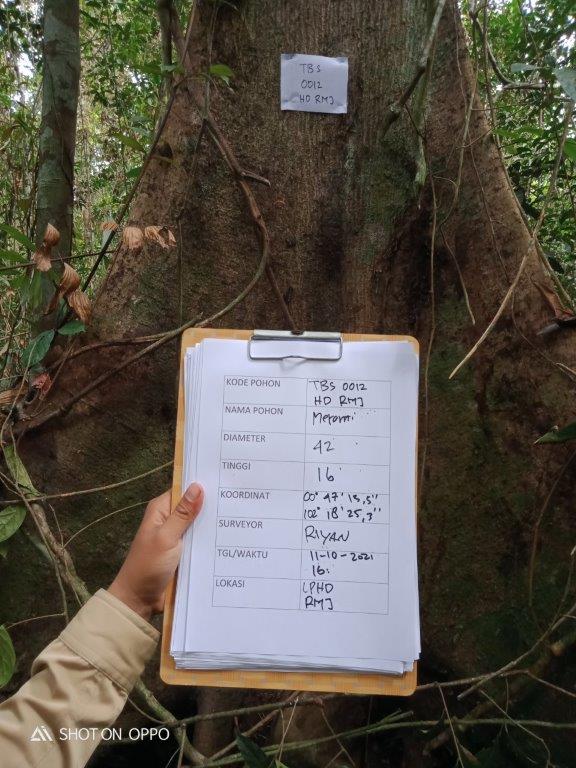 TBS
0012
HD RMJ
KODE POHON TBS 0012
HD RMJ
NAMA POHON Meranti
DIAMETER 42
TINGGI 16
KOORDINAT 00° 47' 15,5"
102° 18' 25,3"
SURVEYOR RIYAN
TGL/WAKTU 11-10-2021
16:
LOKASI LPHD
RMJ
SHOT ON OPPO